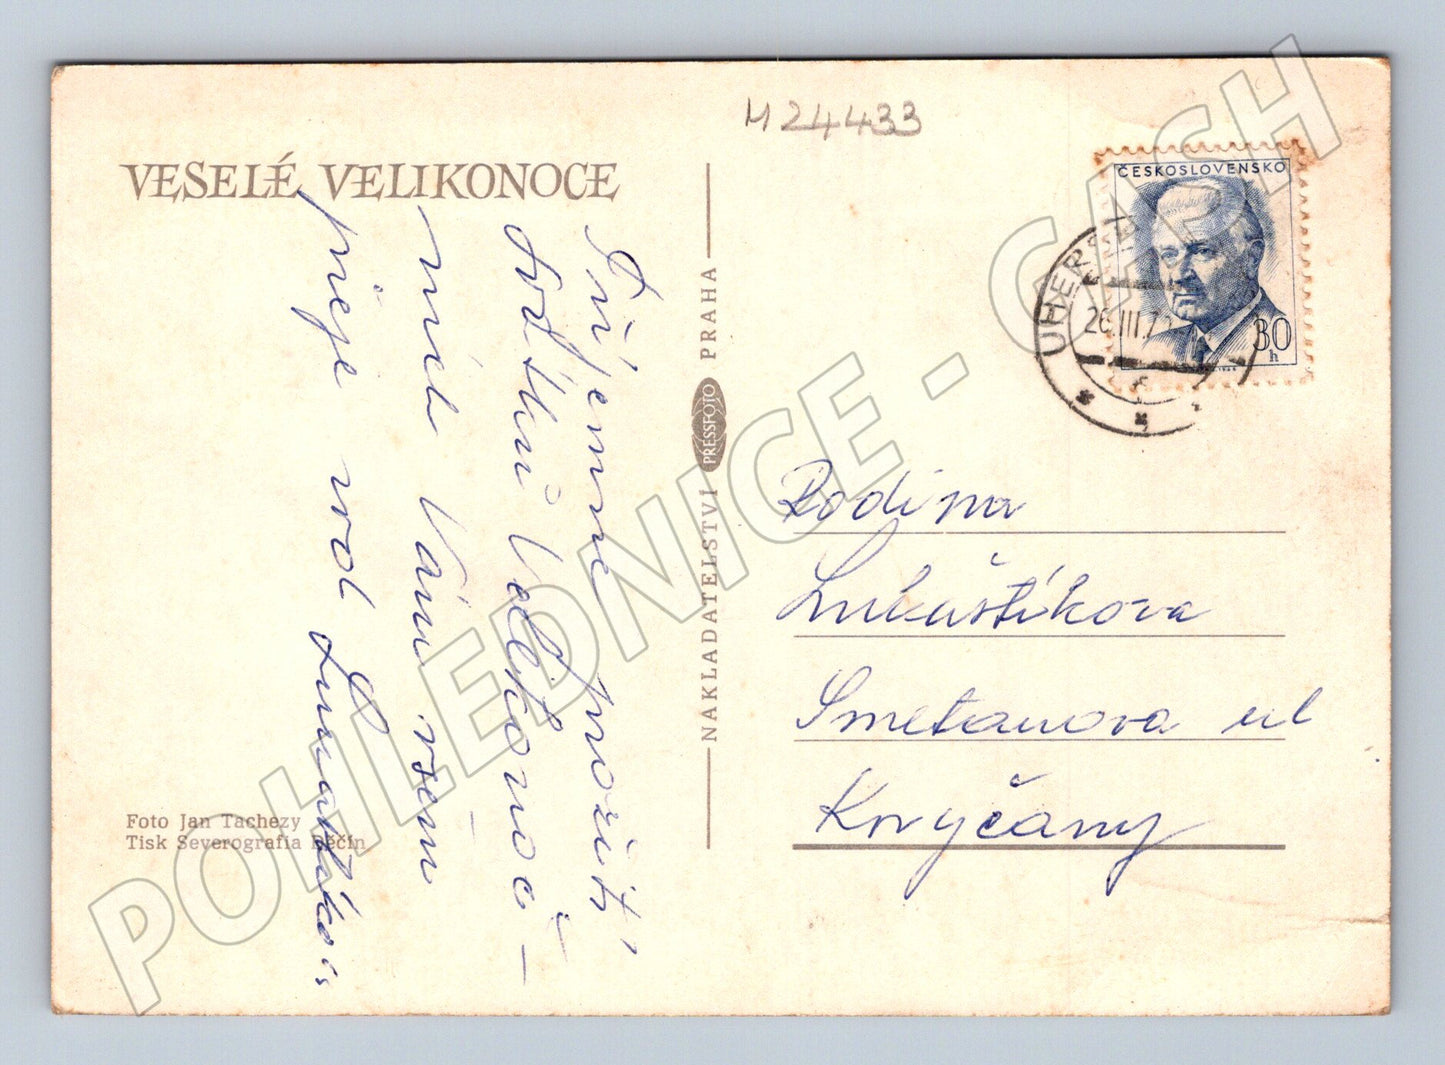 M 24433
VESELÉ VELIKONOCE
Příjemné prožití
svátků Velikonoč-
ních Vám všem
přeje rod.
NAKLADATELSTVÍ PRESSFOTO PRAHA
ČESKOSLOVENSKO
30
h
26.III.7
Rodina
Lukaštíkova
Smetanova ul
Koryčany
Foto Jan Tachezy
Tisk Severografia Děčín
POHLEDNICE - CASH